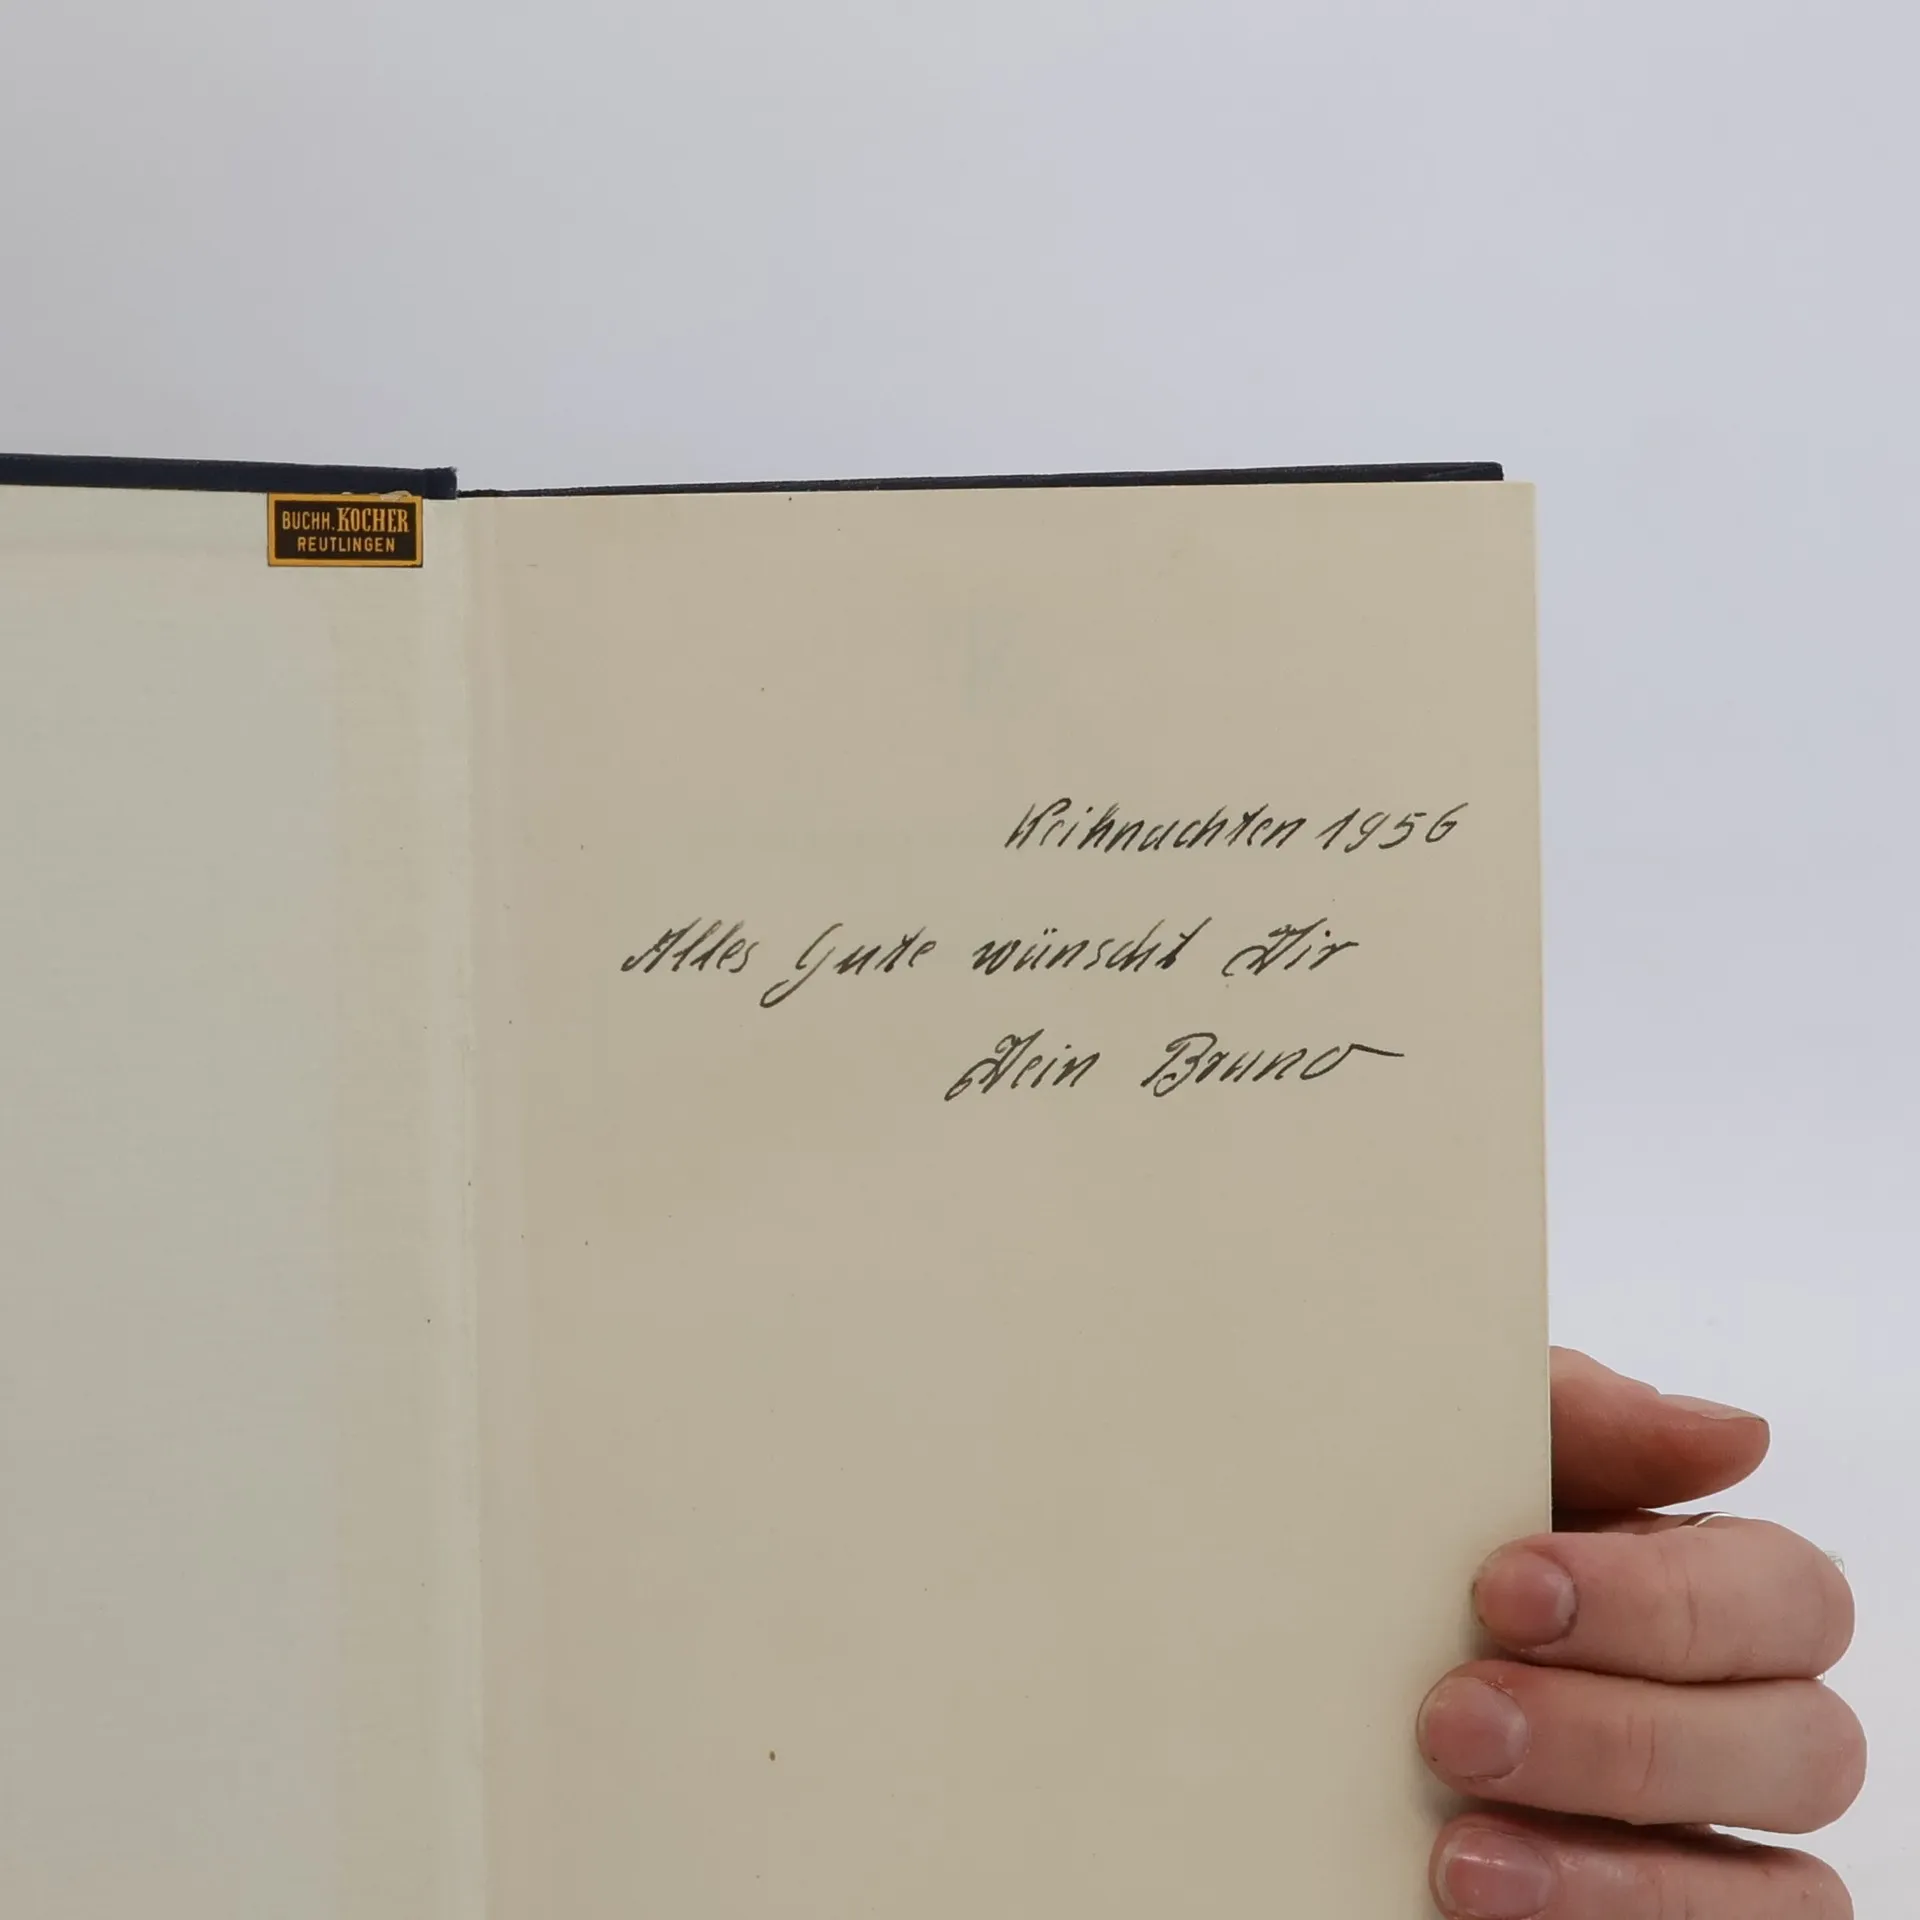 BUCHH. KOCHER
REUTLINGEN
Weihnachten 1956
Alles Gute wünscht Dir
Dein Bruno